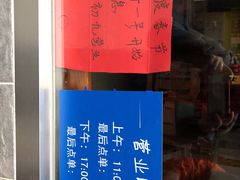 度春节
一号开始
息
初九营业
营业
上午：11:0
最后点单：
下午：17:00
最后点单：